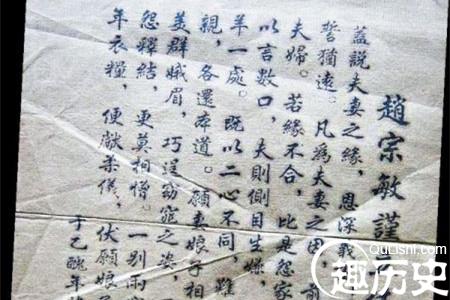 趙宗敏謹
蓋說夫妻之緣，恩深義
誓猶遠。凡為夫妻之因，前
夫婦。若緣不合，比是怨家
以言數口，夫則側目生嫌，
羊一處。既以二心不同，難
親，各還本道。願妻娘子相
美群娥眉，巧逞窈窕之姿，
怨釋結，更莫相憎。一別兩
年衣糧，便獻柔儀，伏願娘
于乙醜年
QuLiShi.com
趣历史